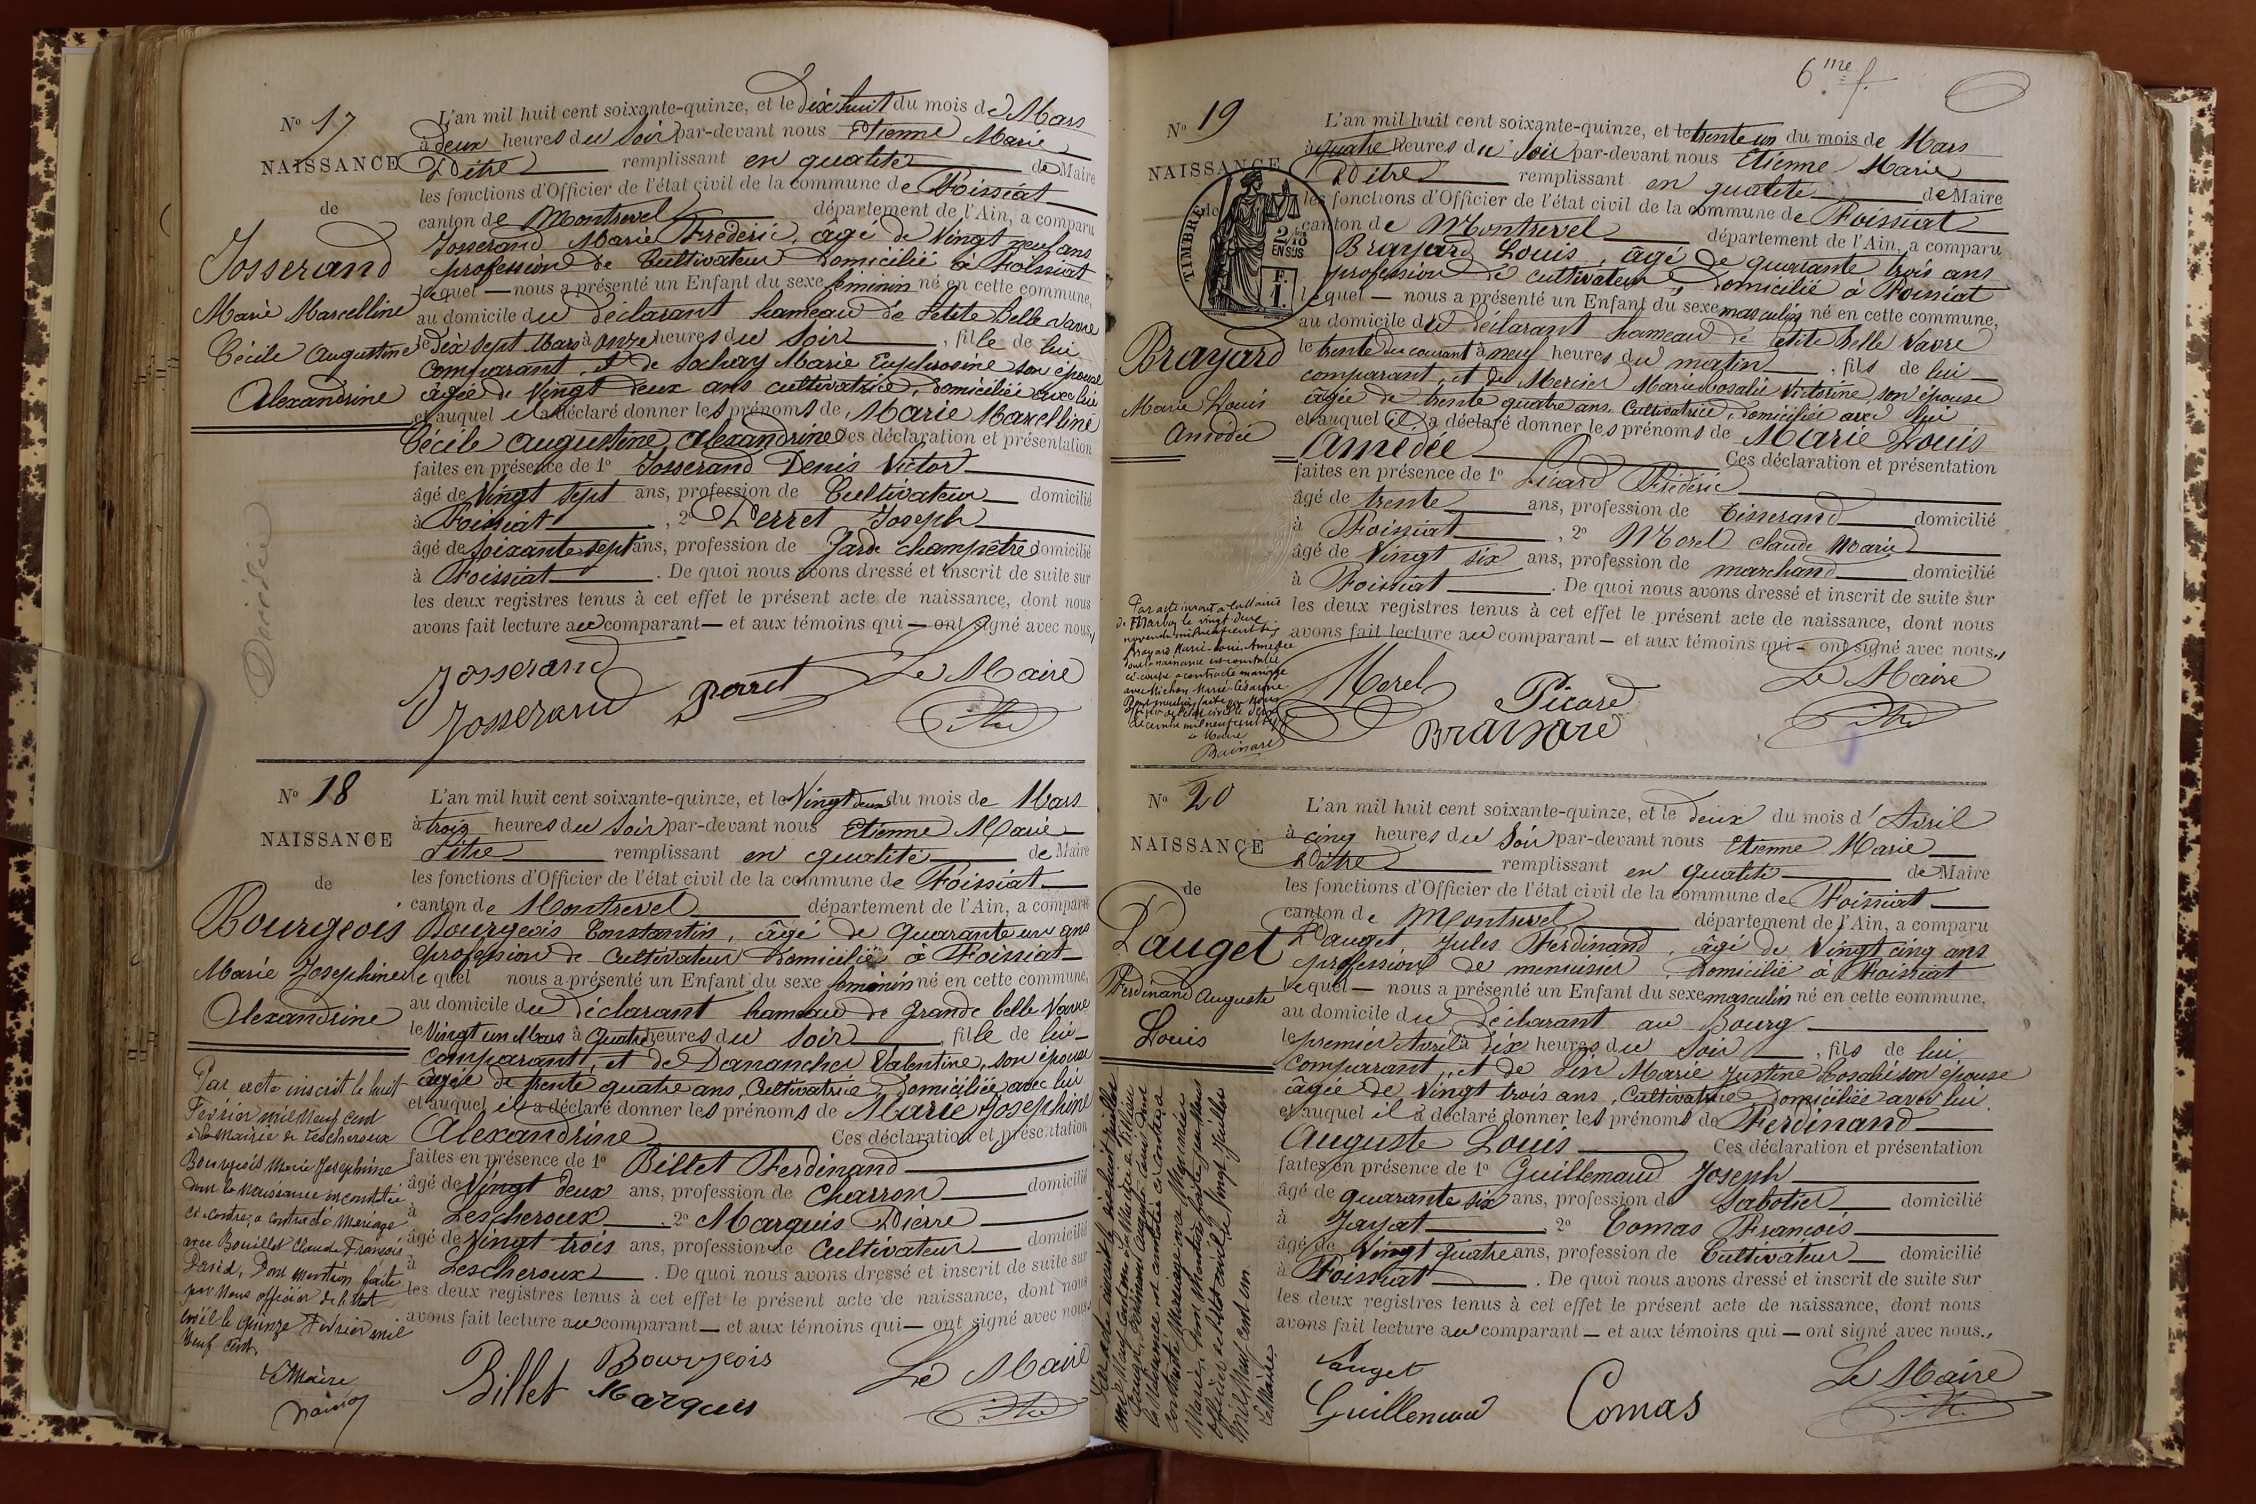 Nº 17
NAISSANCE
de
Josserand
Marie Marcelline
Cécile Augustine
Alexandrine
Décédée
L'an mil huit cent soixante-quinze, et le dix huit du mois de Mars
à deux heures du Soir par-devant nous Etienne Marie
Pitre remplissant en qualité de Maire
les fonctions d'Officier de l'état civil de la commune de Foissiat
canton de Montrevel département de l'Ain, a comparu
Josserand Marie Frédéric, agé de Vingt neuf ans
profession de Cultivateur domicilié à Foissiat
lequel — nous a présenté un Enfant du sexe féminin né en cette commune,
au domicile du déclarant hameau de Petite Belle Vavre
le dix sept Mars à onze heures du Soir, fille de lui
comparant, et de Sochay Marie Euphrosine son épouse
âgée de Vingt deux ans cultivatrice, domiciliée avec lui
et auquel il a déclaré donner les prénoms de Marie Marcelline
Cécile Augustine Alexandrine Ces déclaration et présentation
faites en présence de 1º Josserand Denis Victor
âgé de Vingt sept ans, profession de Cultivateur domicilié
à Foissiat, 2º Perret Joseph
âgé de soixante sept ans, profession de Garde champêtre domicilié
à Foissiat. De quoi nous avons dressé et inscrit de suite sur
les deux registres tenus à cet effet le présent acte de naissance, dont nous
avons fait lecture au comparant — et aux témoins qui — ont signé avec nous,
Josserand
Perret
Le Maire
Josserand
Pitre
Nº 18
NAISSANCE
de
Bourgeois
Marie Josephine
Alexandrine
Par acte inscrit le huit
Février mil neuf cent
à la Mairie de Lescheroux
Bourgeois Marie Josephine
dont la naissance est constatée
ci-contre, a contracté mariage
avec Bouillet Claude François
David, Dont mention faite
par nous officier de l'état
civil le quinze Février mil
neuf cent
Le Maire
L'an mil huit cent soixante-quinze, et le Vingt deux du mois de Mars
à trois heures du Soir par-devant nous Etienne Marie
Pitre remplissant en qualité de Maire
les fonctions d'Officier de l'état civil de la commune de Foissiat
canton de Montrevel département de l'Ain, a comparu
Bourgeois Constantin, âgé de quarante un ans
profession de Cultivateur domicilié à Foissiat
lequel nous a présenté un Enfant du sexe féminin né en cette commune,
au domicile du déclarant hameau de Grande belle Vavre
le Vingt un Mars à quatre heures du Soir, fille de lui
comparant, et de Danancher Valentine, son épouse
âgée de trente quatre ans, Cultivatrice, domiciliée avec lui
et auquel il a déclaré donner les prénoms de Marie Josephine
Alexandrine Ces déclaration et présentation
faites en présence de 1º Billet Ferdinand
âgé de Vingt deux ans, profession de Charron domicilié
à Lescheroux, 2º Marquis Pierre
âgé de Vingt trois ans, profession de Cultivateur domicilié
à Lescheroux. De quoi nous avons dressé et inscrit de suite sur
les deux registres tenus à cet effet le présent acte de naissance, dont nous
avons fait lecture au comparant — et aux témoins qui — ont signé avec nous.
Bourgeois
Billet Marquis
Le Maire
Pitre
6me f.
Nº 19
NAISSANCE
de
TIMBRE
2/10
EN SUS
F.
1.
Brayard
Marie Louis
Amédée
Par acte inscrit à la Mairie
de Marboz le vingt deux
novembre mil neuf cent six
Brayard Marie-Louis Amédée
dont la naissance est constatée
ci-contre a contracté mariage
avec Michon Marie-Césarine
Le Maire
L'an mil huit cent soixante-quinze, et le trente un du mois de Mars
à quatre heures du Soir par-devant nous Etienne Marie
Pitre remplissant en qualité de Maire
les fonctions d'Officier de l'état civil de la commune de Foissiat
canton de Montrevel département de l'Ain, a comparu
Brayard Louis, âgé de quarante trois ans
profession de cultivateur, domicilié à Foissiat
lequel — nous a présenté un Enfant du sexe masculin né en cette commune,
au domicile du déclarant hameau de Petite Belle Vavre
le trente du courant à neuf heures du matin, fils de lui
comparant, et de Mercier Marie Rosalie Victorine, son épouse
âgée de trente quatre ans, Cultivatrice, domiciliée avec lui
et auquel il a déclaré donner les prénoms de Marie Louis
Amédée Ces déclaration et présentation
faites en présence de 1º Picard Frédéric
âgé de trente ans, profession de Tisserand domicilié
à Foissiat, 2º Morel Claude Marie
âgé de Vingt six ans, profession de marchand domicilié
à Foissiat. De quoi nous avons dressé et inscrit de suite sur
les deux registres tenus à cet effet le présent acte de naissance, dont nous
avons fait lecture au comparant — et aux témoins qui — ont signé avec nous.,
Morel Picard
Le Maire
Braiyard
Pitre
Nº 20
NAISSANCE
de
Pauget
Ferdinand Auguste
Louis
Par acte inscrit le dix huit juillet
mil neuf cent un
Pauget Ferdinand Auguste Louis dont
la naissance est constatée ci-contre a
contracté Mariage avec
Marie, Dont Mention faite par Nous
officier de l'état civil le Vingt Juillet
Mil Neuf cent un.
Le Maire
L'an mil huit cent soixante-quinze, et le deux du mois d'Avril
à cinq heures du Soir par-devant nous Etienne Marie
Pitre remplissant en qualité de Maire
les fonctions d'Officier de l'état civil de la commune de Foissiat
canton de Montrevel département de l'Ain, a comparu
Pauget Jules Ferdinand, âgé de Vingt cinq ans
profession de menuisier, domicilié à Foissiat
lequel — nous a présenté un Enfant du sexe masculin né en cette commune,
au domicile du déclarant au Bourg
le premier Avril à dix heures du Soir, fils de lui
comparant, et de Pin Marie Justine Rosalie son épouse
âgée de Vingt trois ans, Cultivatrice, domiciliée avec lui.
et auquel il a déclaré donner les prénoms de Ferdinand
Auguste Louis Ces déclaration et présentation
faites en présence de 1º Guillemaud Joseph
âgé de quarante six ans, profession de Sabotier domicilié
à Jayat 2º Comas François
âgé de Vingt quatre ans, profession de Cultivateur domicilié
à Foissiat. De quoi nous avons dressé et inscrit de suite sur
les deux registres tenus à cet effet le présent acte de naissance, dont nous
avons fait lecture au comparant — et aux témoins qui — ont signé avec nous.,
Pauget
Guillemaud Comas
Le Maire
Pitre